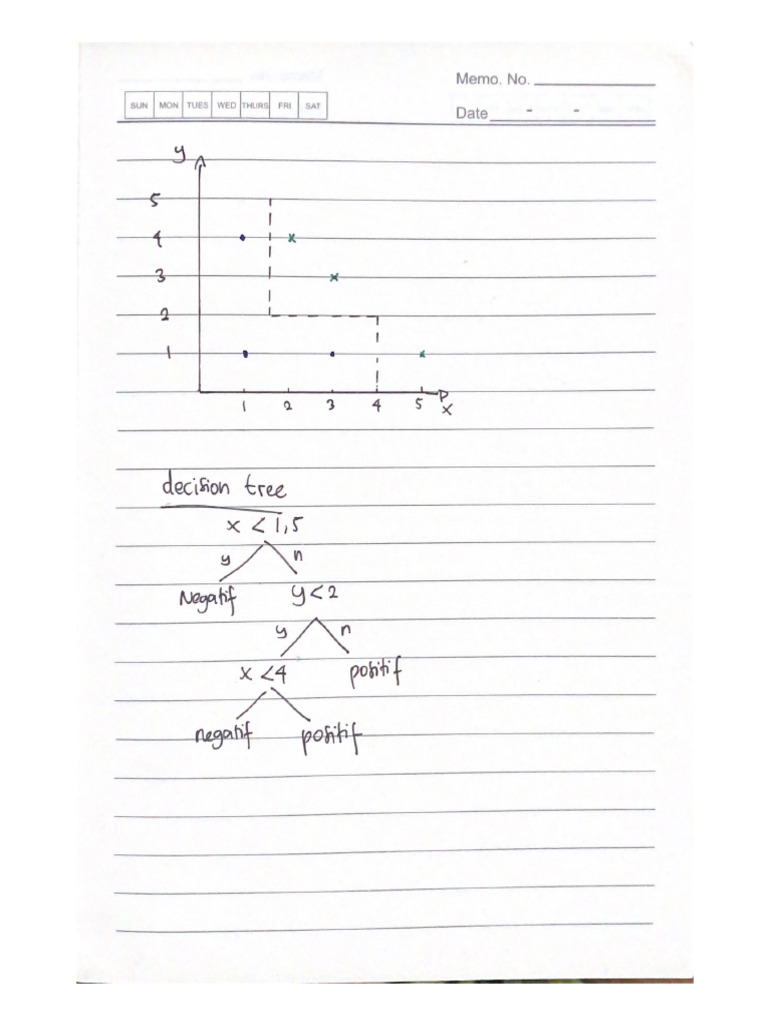 Memo. No.
SUN MON TUES WED THURS FRI SAT
Date - -
y
5
4
3
2
1
1 2 3 4 5
x
decision tree
x < 1,5
y n
Negatif y < 2
y n
x < 4 positif
negatif positif